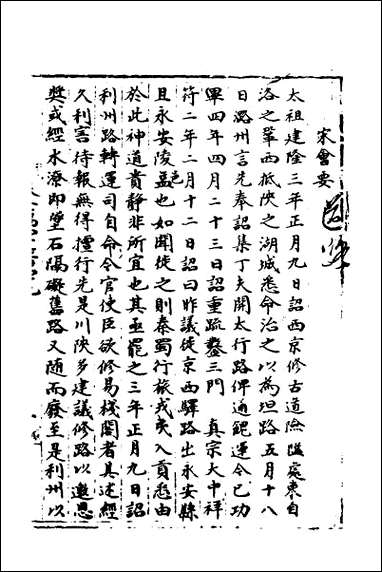 宋會要
道路
太祖建隆三年正月九日詔西京修古道險隘處東自
洛之鞏西抵陝之湖城悉命治之以為坦路五月十八
日潞州言先奉詔集丁夫開太行路俾通餽運今已功
畢四年四月二十三日詔重疏鑿三門 真宗大中祥
符二年二月十二日詔曰昨議徙京西驛路出永安縣
且永安陵邑也如聞徙之則秦蜀行旅戎夷入貢悉由
於此神道貴靜非所宜也其亟罷之三年正月九日詔
利州路轉運司自今令官使臣欲修易棧閣者其述經
久利害待報無得擅行先是川陝多建議修路以邀恩
獎或經水潦即壘石隔礙舊路又隨而廢至是利州以